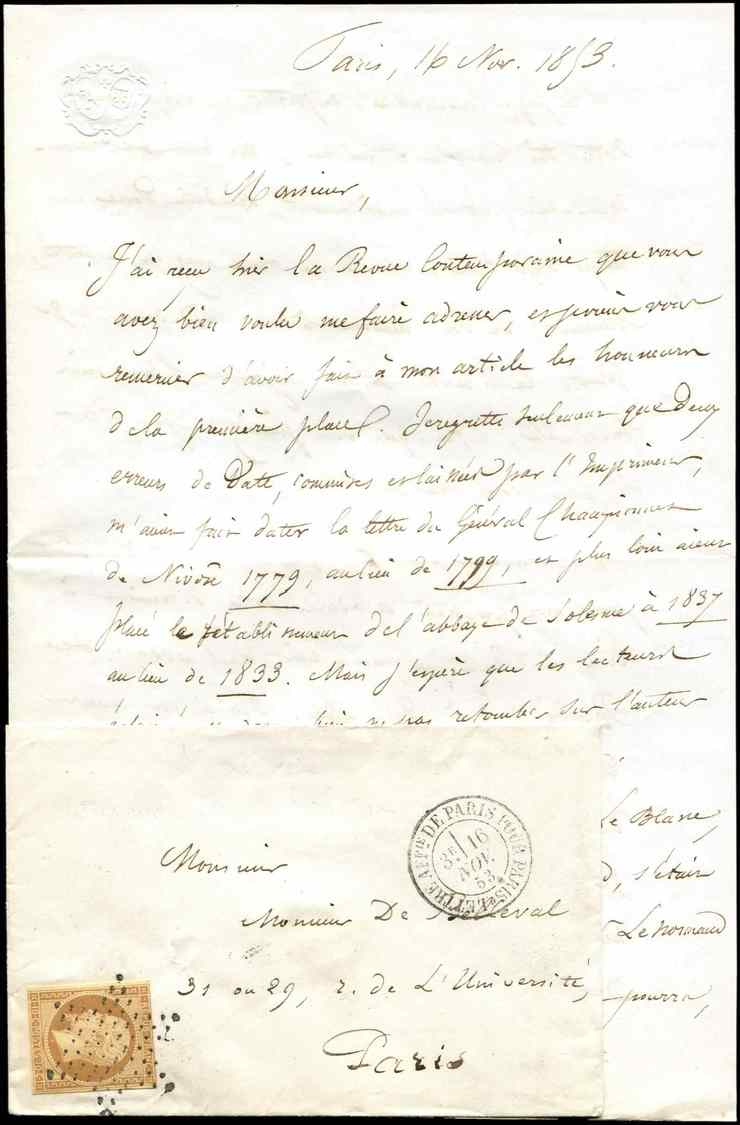 Paris, 16 Nov. 1853.
Monsieur,
J'ai reçu hier la Revue Contemporaine que vous
avez bien voulu me faire adresser, et je viens vous
remercier d'avoir fait à mon article les honneurs
de la première place. Je regrette seulement que deux
erreurs de Date, commises et laissées par l'Imprimeur,
m'aient fait dater la lettre du Général Championnet
de Nivôse 1779, au lieu de 1799, et plus loin aient
placé le rétablissement de l'abbaye de Solesme à 1837
au lieu de 1833. Mais j'espère que les lecteurs
retomber sur l'auteur
Le Blanc,
s'était
Le Normand
pourra,
LETTRE AFFie. DE PARIS POUR PARIS
3e
16
NOV.
53
Monsieur
Monsieur De Belleval
31 ou 29, r. de L'Université,
Paris